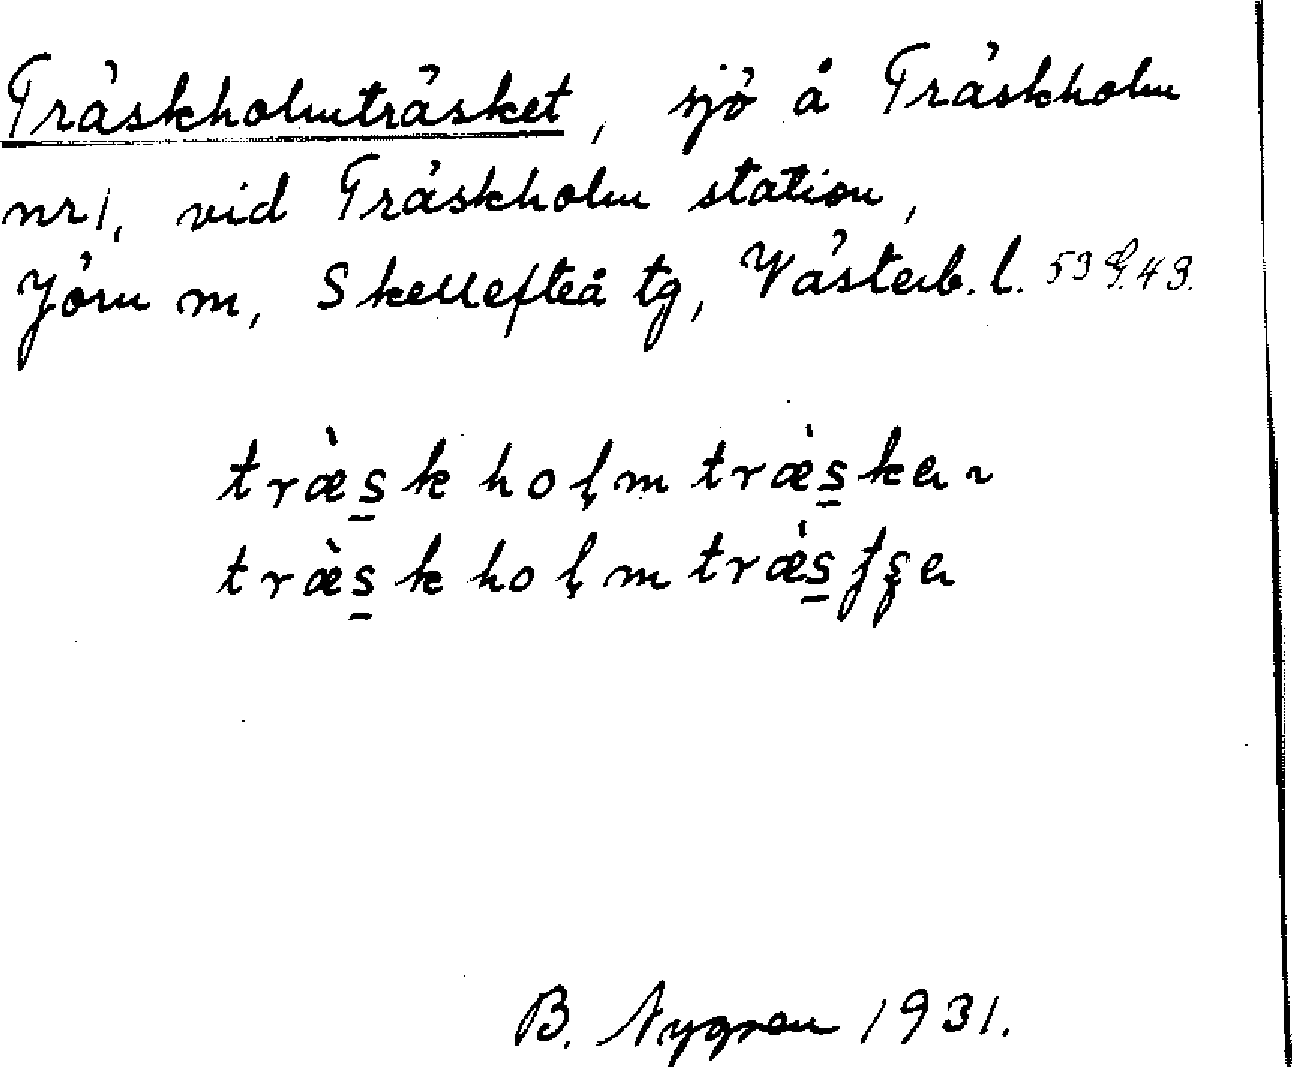 Träskholmträsket, sjö å Träskholm
nr 1, vid Träskholm station,
Jörn m, Skellefteå tg, Västerb. l. 53 G. 43.
træ̀s̱kholmtræ̀s̱ka ~
træ̀s̱kholmtræ̀s̱
B. Nygren 1931.